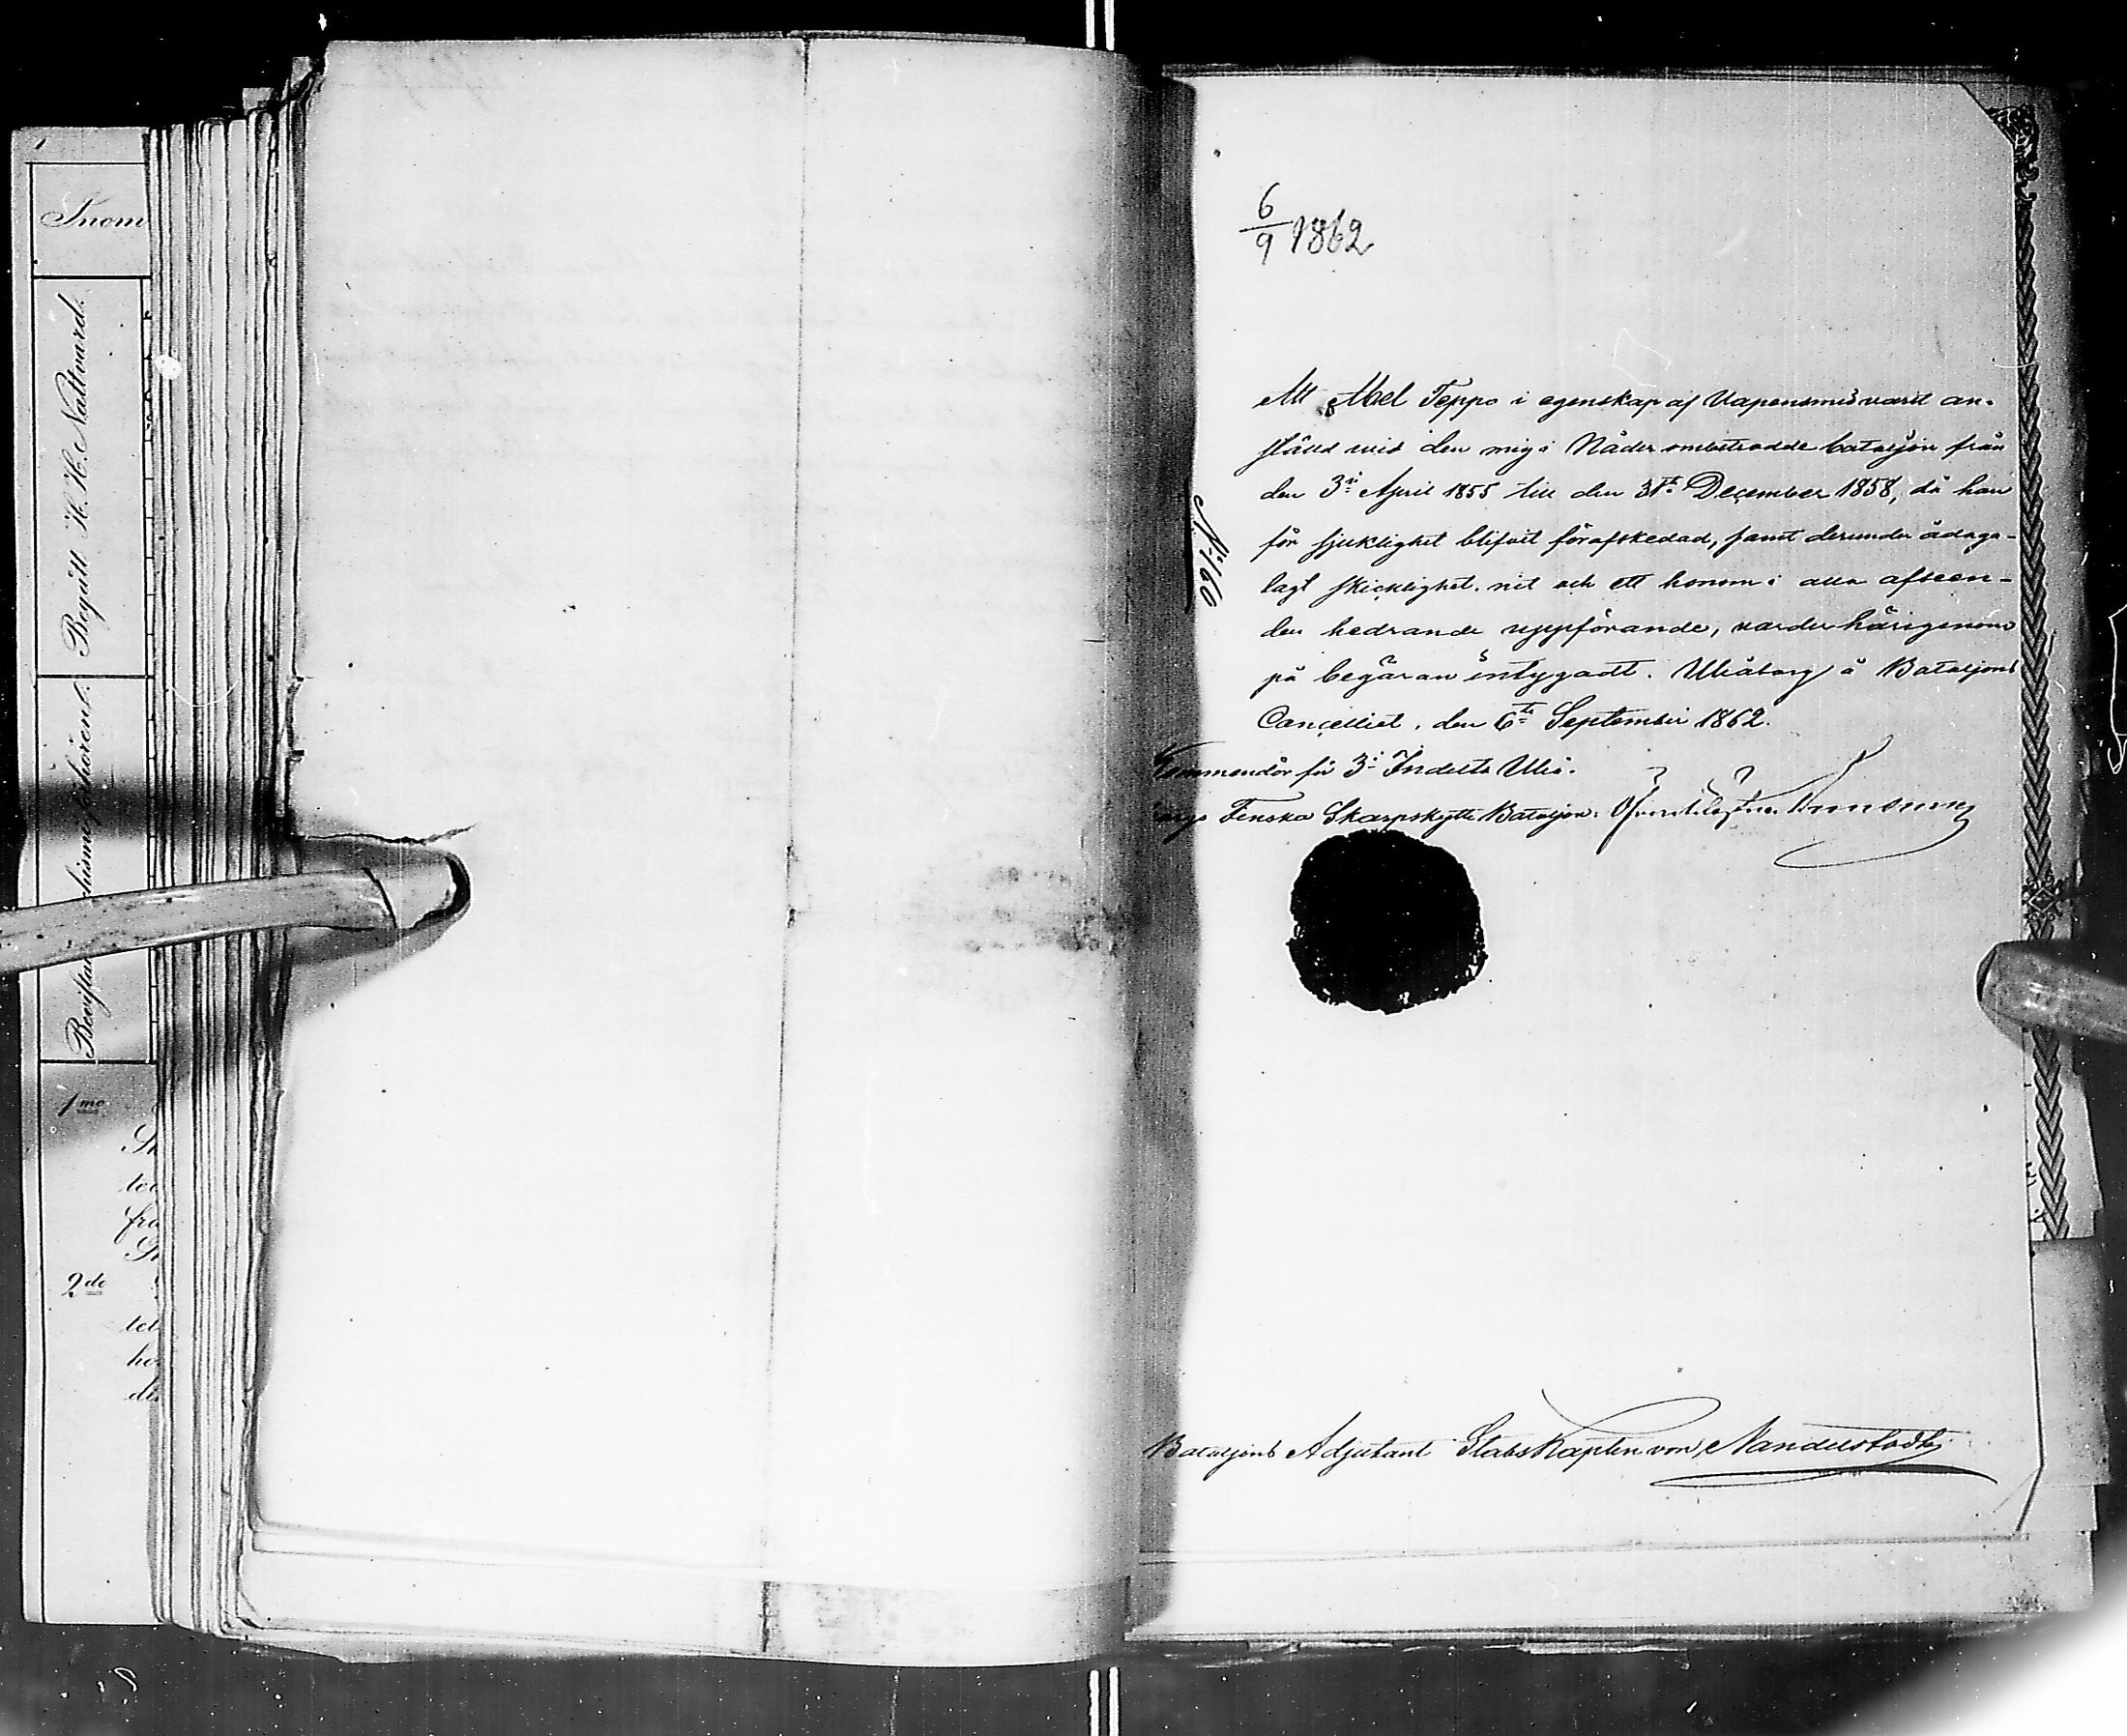 Inom
Begått H. H. Nattvard.
1mo
2do
6/9 1862
No 160
Att Abel Teppo i egenskap af Vapensmed varit an-
ställd wid den mig i Nåder ombetrodde bataljon från
den 3:e April 1855 till den 31ste December 1858, då han
för sjuklighet blifvit förafskedad, samt derunder ådaga-
lagt skicklighet, nit och ett honom i alla afseen-
den hedrande uppförande, varder härigenom
på begäran intygadt. Uleåborg å Bataljons
Cancelliet, den 6te September 1862.
Kommendör för 3:e Indelta Uleå-
borgs Finska Skarpskytte Bataljon.
Bataljons Adjutant Stabskapten von Nandelstadh